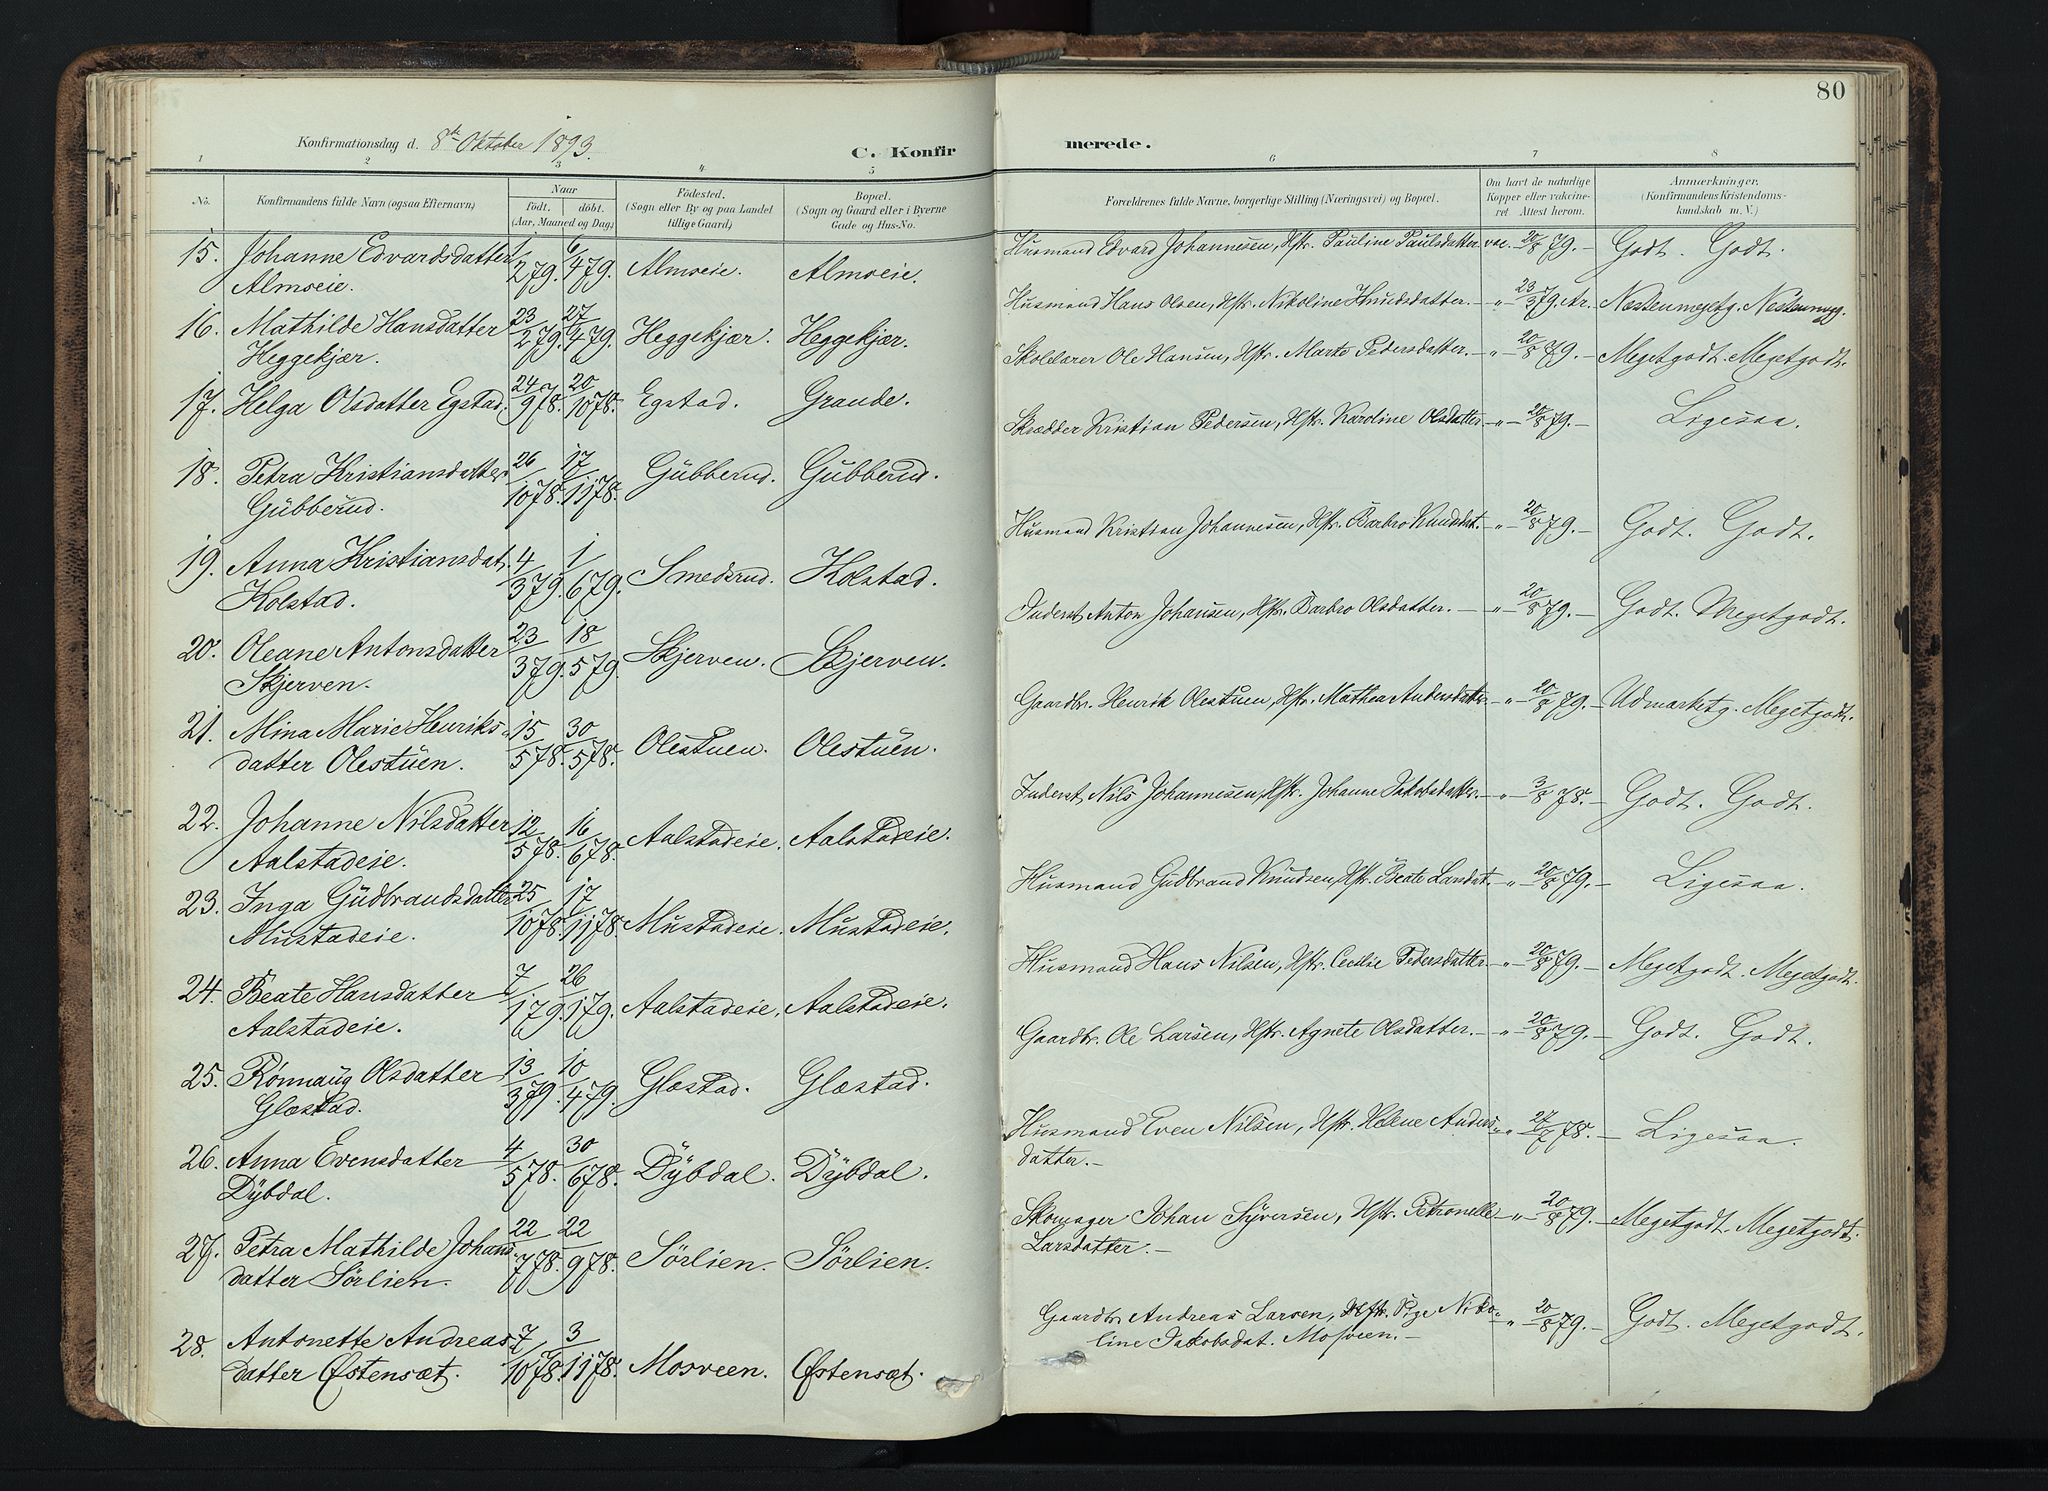 80
Konfirmationsdag d. 8de Oktober 1893.
C. Konfir merede.
1 2 3 4 5 6 7 8
No.
Konfirmandens fulde Navn (ogsaa Efternavn)
Naar
födt. döbt.
(Aar, Maaned og Dag)
Födested.
(Sogn eller By og paa Landet
tillige Gaard)
Bopæl.
(Sogn og Gaard eller i Byerne
Gade og Hus-No.
Forældrenes fulde Navne, borgerlige Stilling (Næringsvei) og Bopæl.
Om havt de naturlige
Kopper eller vaccine-
ret Attest herom.
Anmærkninger.
(Konfirmandens Kristendoms-
kundskab m. V.)
15. Johanne Edvardsdatter 1/2 79. 6/4 79. Almseie. Almseie. Husmand Edvard Johannesen, Hstr. Pauline Paulsdatter. vac. 20/8 79. Godt. Godt.
Almseie.
16. Mathilde Hansdatter 23/2 79. 27/4 79. Heggekjær. Heggekjær. Husmand Hans Olsen, Hstr. Nikoline Knudsdatter. " 23/3 79. Ar. Nestenmegetg. Nestenmeg.
Heggekjær.
17. Helga Olsdatter Egstad. 24/9 78. 20/10 78. Egstad. Grande. Skolelærer Ole Hansen, Hstr. Marte Pedersdatter. " 20/8 79. Megetgodt. Megetgodt.
18. Petra Kristiansdatter 26/10 78. 17/11 78. Gubberud. Gubberud. Skrædder Kristian Pedersen, Hstr. Karoline Olsdatter " 20/8 79. Ligesaa.
Gubberud.
19. Anna Kristiansdat. 4/3 79. 1/6 79. Smedsrud. Kolstad. Husmand Kristian Johannesen, Hstr. Barbro Knudsdat. " 20/8 79. Godt. Godt.
Kolstad.
20. Oleane Antonsdatter 23/3 79. 18/5 79. Skjerven. Skjerven. Inderst Anton Johansen, Hstr. Barbro Olsdatter. " 20/8 79. Godt. Megetgodt.
Skjerven.
21. Mina Marie Henriks- 15/5 78. 30/5 78. Olestuen. Olestuen. Gaardbr. Henrik Olestuen, Hstr. Mathea Andersdatter " 20/8 79. Udmarketg. Megetgodt.
datter Olestuen.
22. Johanne Nilsdatter 12/5 78. 16/6 78. Aalstadeie. Aalstadeie. Inderst Nils Johannesen, Hstr. Johanne Jakobsdatter. " 3/8 78. Godt. Godt.
Aalstadeie.
23. Inga Gudbrandsdatter 25/10 78. 17/11 78. Mustadeie. Mustadeie. Husmand Gudbrand Knudsen, Hstr. Beate Larsdat. " 20/8 79. Ligesaa.
Mustadeie.
24. Beate Hansdatter 7/1 79. 26/1 79. Aalstadeie. Aalstadeie. Husmand Hans Nilsen, Hstr. Cecilie Pedersdatter " 20/8 79. Megetgodt. Megetgodt.
Aalstadeie.
25. Rønnaug Olsdatter 13/3 79. 10/4 79. Glæstad. Glæstad. Gaardbr. Ole Larsen, Hstr. Agnete Olsdatter. " 20/8 79. Godt. Godt.
Glæstad.
26. Anna Evensdatter 4/5 78. 30/6 78. Dybdal. Dybdal. Husmand Even Nilsen, Hstr. Helene Anders- " 27/7 78. Ligesaa.
Dybdal. datter.
27. Petra Mathilde Johans- 22/7 78. 22/9 78. Sørlien. Sørlien. Skomager Johan Syversen, Hstr. Petronelle " 20/8 79. Megetgodt. Megetgodt.
datter Sørlien. Larsdatter.
28. Antonette Andreas- 7/10 78. 3/11 78. Mosveen. Østensæt. Gaardbr Andreas Larsen, Pige Niko- " 20/8 79. Godt. Megetgodt.
datter Østensæt. line Jakobsdat. Mosveen.